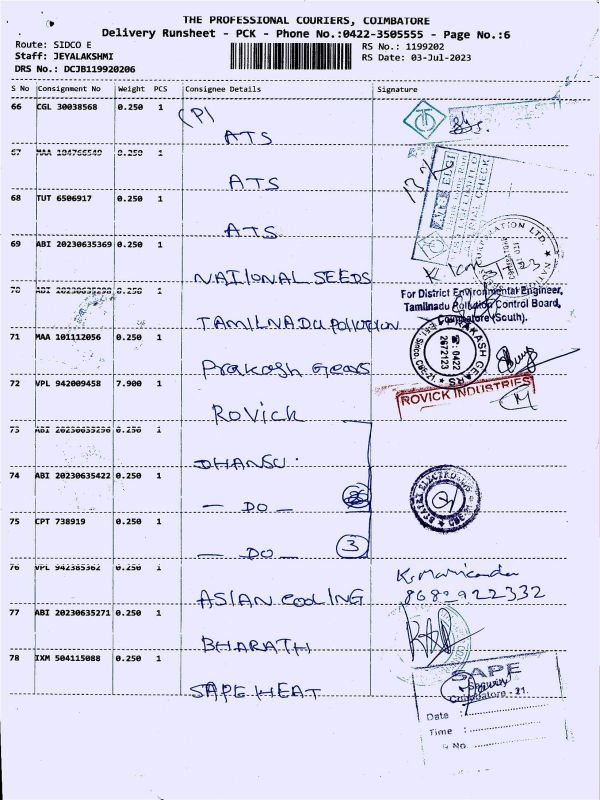 THE PROFESSIONAL COURIERS, COIMBATORE
Delivery Runsheet - PCK - Phone No.:0422-3505555 - Page No.:6
Route: SIDCO E
RS No.: 1199202
Staff: JEYALAKSHMI
RS Date: 03-Jul-2023
DRS No.: DCJB119920206
S No Consignment No Weight PCS Consignee Details Signature
66 CGL 30038568 0.250 1
(P)
ATS
67 MAA 0.250 1
ATS
68 TUT 6506917 0.250 1
ATS
69 ABI 20230635369 0.250 1
NATIONAL SEEDS
70 ABI 0.250 1
For District Environmental Engineer,
Tamilnadu Pollution Control Board,
Coimbatore (South).
TAMILNADU POLLUTION
71 MAA 101112056 0.250 1
PRAKASH GEARS
0422
2672123
Prakash Gears
72 VPL 942009458 7.900 1
ROVICK INDUSTRIES
ROVICK
73 ABI 0.250 1
DHANSU.
74 ABI 20230635422 0.250 1
— DO —
75 CPT 738919 0.250 1
— DO — 3
76 VPL 942385362 0.250 1
8682922332
ASIAN COOLING
77 ABI 20230635271 0.250 1
BHARATH
78 IXM 504115088 0.250 1
SAPE HEAT
SAPE
Security
Coimbatore - 21.
Date :
Time :